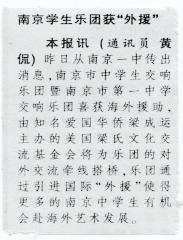 南京学生乐团获“外援”
本报讯（通讯员 黄
侃）昨日从南京一中传出
消息，南京市中学生交响
乐团暨南京市第一中学
交响乐团喜获海外援助，
由知名爱国华侨梁成运
主办的美国梁氏文化交
流基金会将为乐团的对
外交流牵线搭桥，乐团通
过引进国际“外援”使得
更多的南京中学生有机
会赴海外艺术发展。